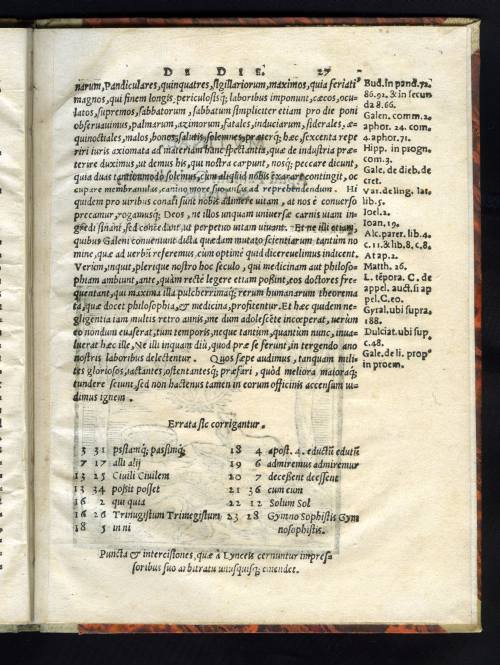 DE DIE. 27
narum, Pandiculares, quinquatres, sigillariorum, maximos, quia feriati
magnos, qui finem longis, periculosisq; laboribus imponunt, cæcos, ocu-
latos, supremos, sabbatorum, sabbatum simpliciter etiam pro die poni
obseruauimus, palmarum, azimorum, fatales, induciarum, siderales, æ-
quinoctiales, malos, bonos, salutis, solemnes, præterq; hæc, sexcenta repe
riri iuris axiomata ad materiam hanc spectantia, quæ de industria præ-
terire duximus, ut demus his, qui nostra carpunt, nosq; peccare dicunt,
quia duas tantiommodo solemus, cum aliquid nobis exarare contingit, oc
cupare membranulas, canino more suo ansas ad reprehendendum. Hi
quidem pro uiribus conati sunt nobis adimere uitam, at nos è conuerso
precamur, rogamusq; Deos, ne illos unquam uniuersæ carnis uiam in-
gredi sinant, sed concedant ut perpetuo uitam uiuant. Et ne illi etiam,
quibus Galeni conuenunt dicta quædam mutato scientiarum tantùm no
mine, quæ ad uerbū referemus, cum optimè quid dicere uelimus indicent.
Verùm, inquit, plerique nostro hoc seculo, qui medicinam aut philoso-
phiam ambiunt, ante, quàm rectè legere etiam possint, eos doctores fre-
quentant, qui maxima illa pulcherrimaq; rerum humanarum theorema
ta, quæ docet philosophia, & medicina, profitentur. Et hæc quidem ne-
gligentia iam multis retro annis, me dum adolescēte incoeperat, uerùm
eo nondum euaserat, tum temporis, neque tantùm, quantùm nunc, inua-
luerat hæc ille, Ne illi inquam diù, quod præ se ferunt, in tergendo ano
nostris laboribus delectentur. Quos sæpe audimus, tanquam mili-
tes gloriosos, iactantes, ostentantesq; præfari, quòd meliora maioraq;
cundere sciunt, sed non hactenus tamen in eorum officinis accensum ui-
dimus ignem.
Bud. in pand. 72.
86. 92. & in secun
da 8. 66.
Galen. comm. 2.
aphor. 24. com.
4. aphor. 71.
Hipp. in progn.
com. 3.
Gale. de dieb. de
cret.
Var. de ling. lat.
lib. 5.
Ioel. 2.
Ioan. 19.
Alc. parer. lib. 4.
c. 11. & lib. 8. c. 8.
At ap. 2.
Matth. 26.
L. tēpora. C. de
appel. auct. si ap
pel. C. eo.
Gyral. ubi supra.
188.
Dulciat. ubi sup.
c. 48.
Gale. de li. prop
in proem.
Errata sic corrigantur.
3 31 pstamq; passimq;
7 17 alli alij
13 25 Ciuili Ciuilem
13 34 possit posset
16 2 qui quia
16 26 Trinugistum Trimegistum
18 5 in ni
18 4 apost. 4. eductū edutū
19 6 admiremus admiremur
20 7 decessent deessent
21 36 cum eum
22 12 Solum Sol
23 28 Gymno Sophistis Gym
nosophistis.
Puncta & intercisiones, quæ à Lynceis cernuntur impres-
soribus suo arbitratu unusquisq; emendet.